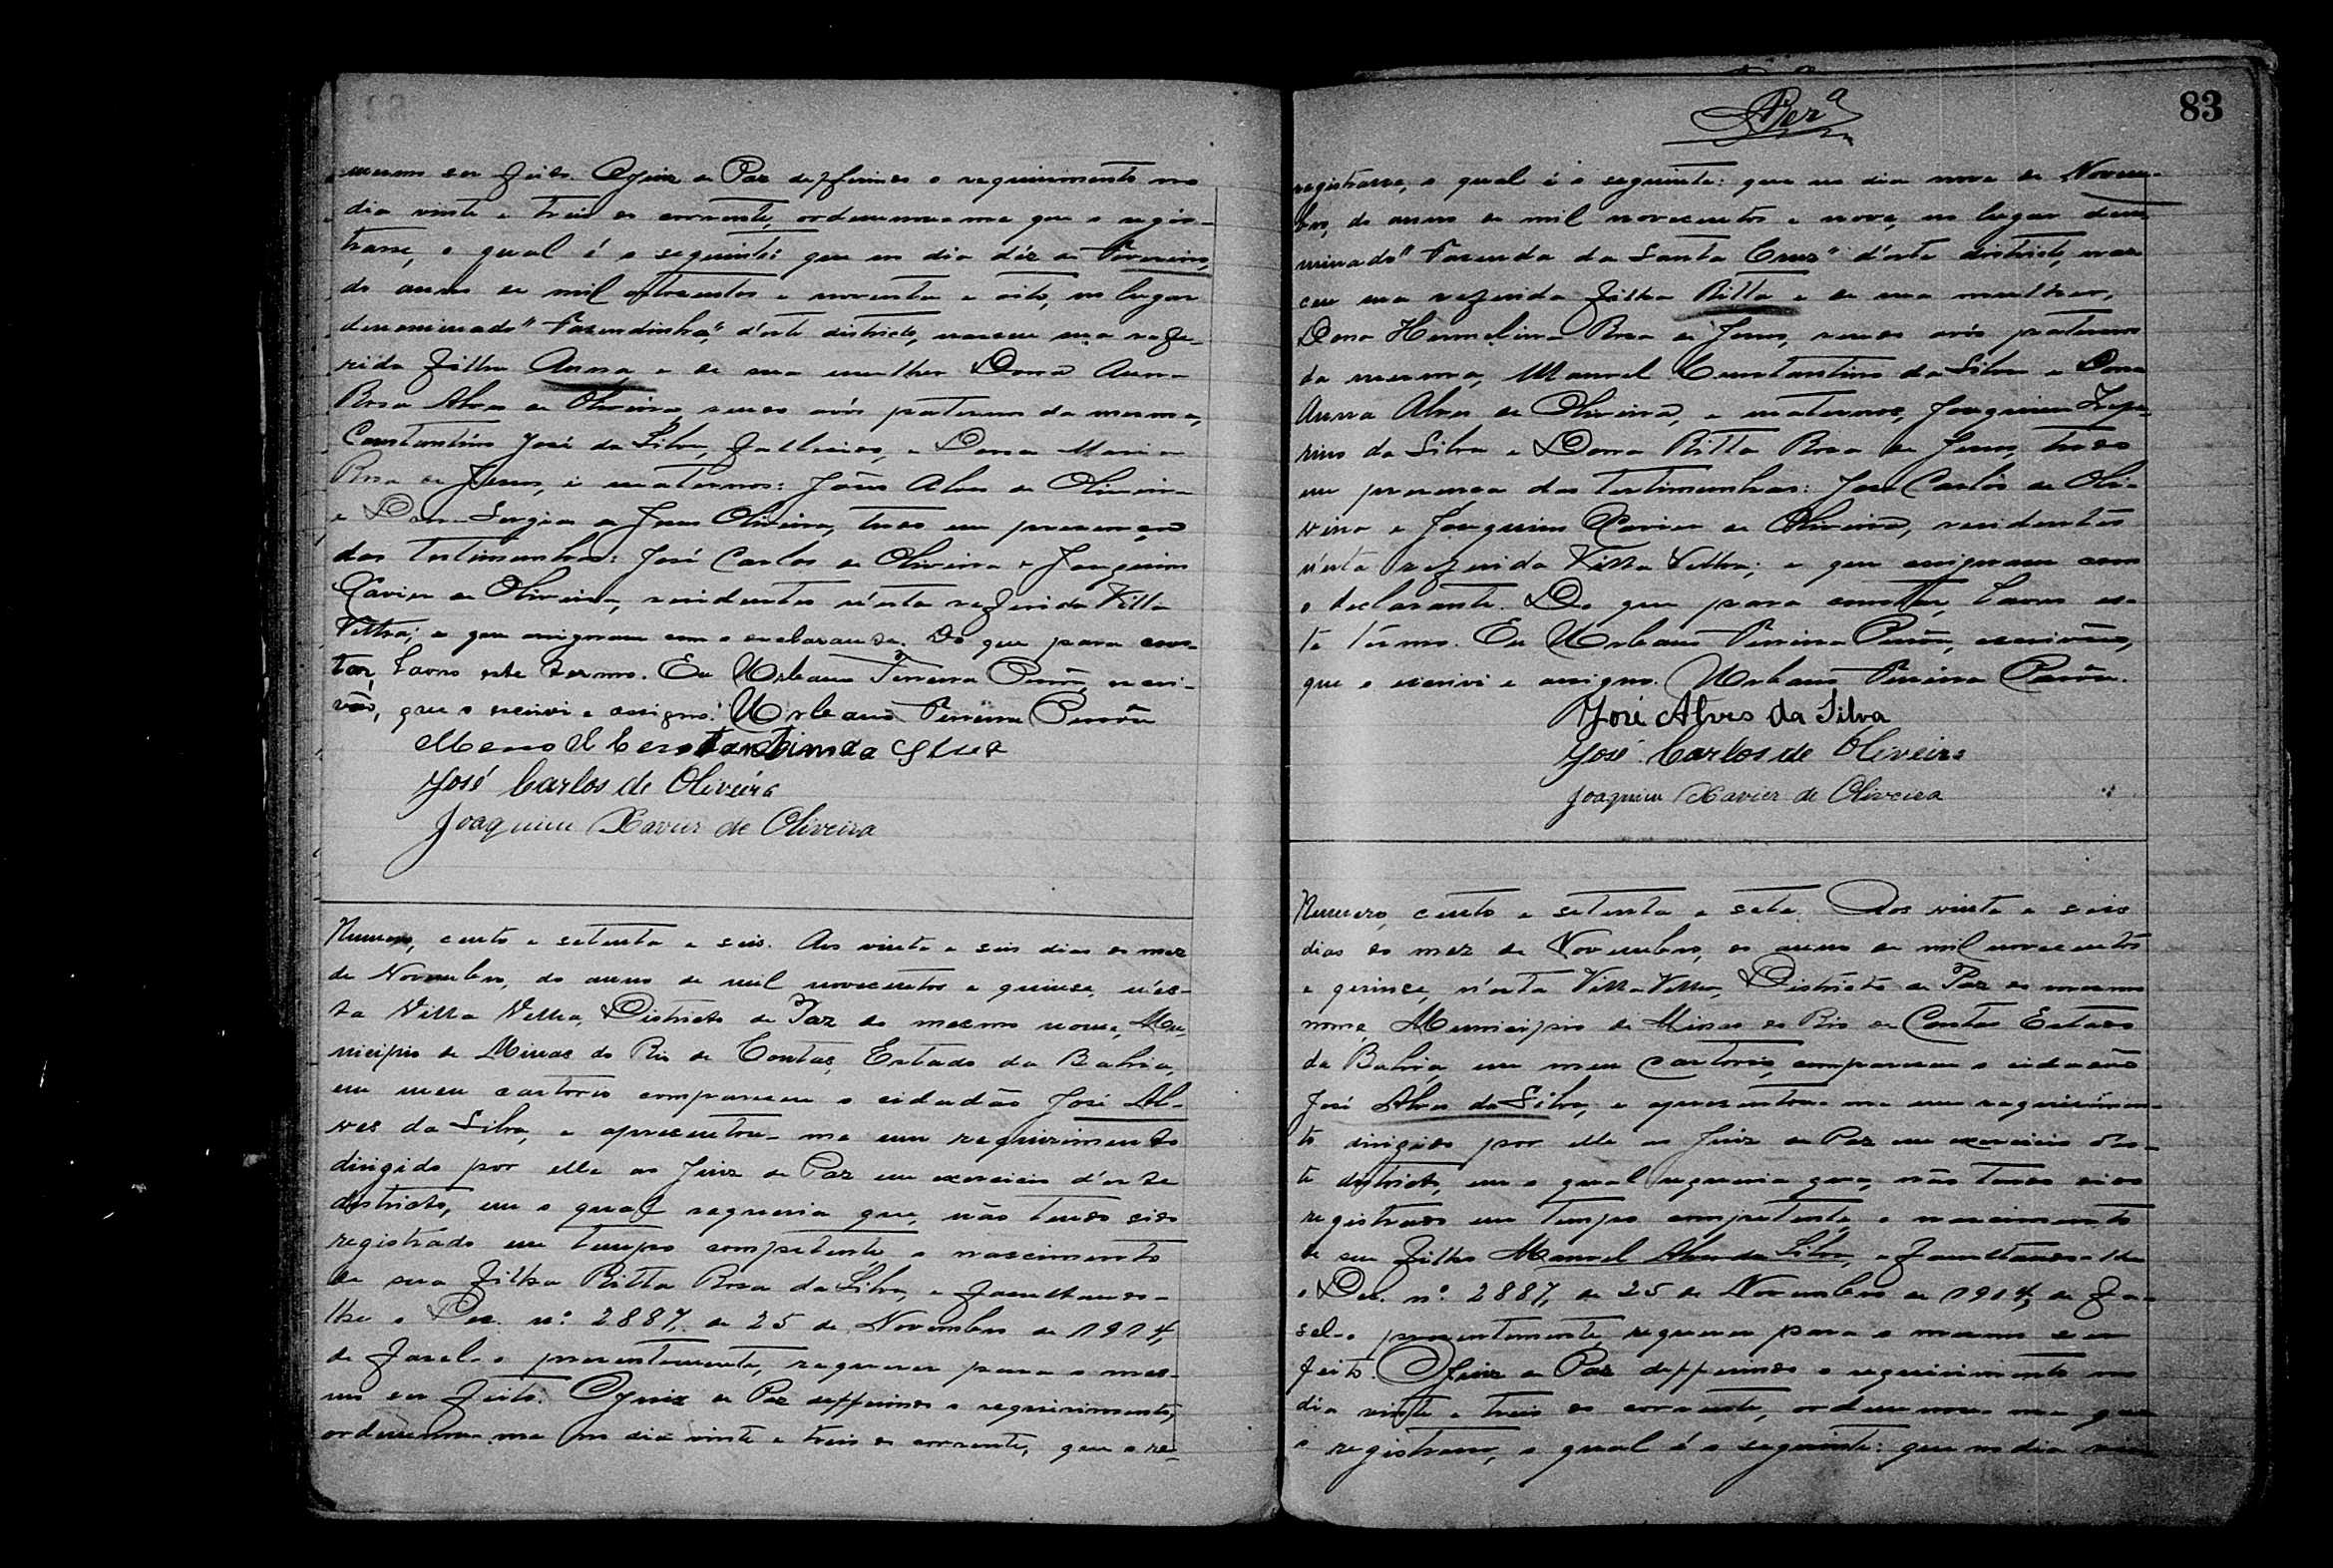 mesmo ser feito. O Juiz de Paz defferindo o requerimento no
dia vinte e treis do corrente, ordenou-me que o regis-
trasse, o qual é o seguinte: que no dia déz de Fevereiro,
do anno de mil oitocentos e noventa e oito, no lugar
denominado "Fazendinha", d'este districto, nasceu sua refe-
rida filha Anna e de sua mulher Dona Anna
Rosa Alves de Oliveira, sendo avós paternos da mesma,
Constantino José da Silva, fallecido, e Dona Maria
Rosa de Jesus, e maternos: João Alves de Oliveira
e Dona Sergia de Jesus Oliveira, tudo em presença
das testimunhas: José Carlos de Oliveira e Joaquim
Xavier de Oliveira, residentes n'esta referida Villa
Velha; e que assignam com o declarante. Do que para cons-
tar, lavro este termo. Eu Urbano Pereira, escri-
vão, que o escrevi e assigno. Urbano Pereira
Manoel Constantino da Silva
José Carlos de Oliveira
Joaquim Xavier de Oliveira
Numero, cento e setenta e seis. Aos vinte e seis dias do mez
de Novembro, do anno de mil novecentos e quinse, n'es-
ta Villa Velha, Districto de Paz do mesmo nome, Mu-
nicipio de Minas do Rio de Contas, Estado da Bahia,
em meu cartorio compareceu o cidadão José Al-
ves da Silva, e apresentou-me um requerimento
dirigido por elle ao Juiz de Paz em exercicio d'este
districto, em o qual requeria que, não tendo sido
registrado em tempo competente, o nascimento
de sua filha Ritta Rosa da Silva, e facultando-
lhe o Dec. nº. 2887, de 25 de Novembro de 1914,
de fazel-o presentemente, requerer para o mes-
mo ser feito. O Juiz de Paz defferindo o requerimento,
ordenou-me no dia vinte e treis do corrente, que o re-
83
registrasse, o qual é o seguinte: que no dia nove de Novem-
bro, do anno de mil novecentos e nove, no lugar deno
minado "Fazenda da Santa Cruz" d'este districto, nas
ceu sua referida filha Ritta e de sua mulher,
Dona Hermelina Rosa de Jesus, sendo avós paternos
da mesma, Manoel Constantino da Silva e Dona
Anna Alves de Oliveira, e maternos, Joaquim Zefe-
rino da Silva e Dona Ritta Rosa de Jesus, tudo
em presença das testimunhas: José Carlos de Oli-
veira e Joaquim Xavier de Oliveira, residentes
n'esta referida Villa Velha; e que assignam com
o declarante. Do que para constar, lavro es-
te termo. Eu Urbano Pereira, escrivão,
que o escrevi e assigno. Urbano Pereira
José Alves da Silva
José Carlos de Oliveira
Joaquim Xavier de Oliveira
Numero, cento e setenta e sete. Aos vinte e seis
dias do mez de Novembro, do anno de mil novecentos
e quinse, n'esta Villa Velha, Districto de Paz do mesmo
nome, Municipio de Minas do Rio de Contas Estado
da Bahia, em meu cartorio, compareceu o cidadão
José Alves da Silva, e apresentou-me um requerimen-
to dirigido por elle ao Juiz de Paz em exercicio d'es-
te districto, em o qual requeria que, não tendo sido
registrado em tempo competente, o nascimento
de seu filho Manoel Alves da Silva, e facultando-lhe
o Dec. nº. 2887, de 25 de Novembro de 1914, de fa-
sel-o presentemente, requerer para o mesmo ser
feito. O Juiz de Paz defferindo o requerimento no
dia vinte e treis do corrente, ordenou-me que
o registrasse, o qual é o seguinte: que no dia